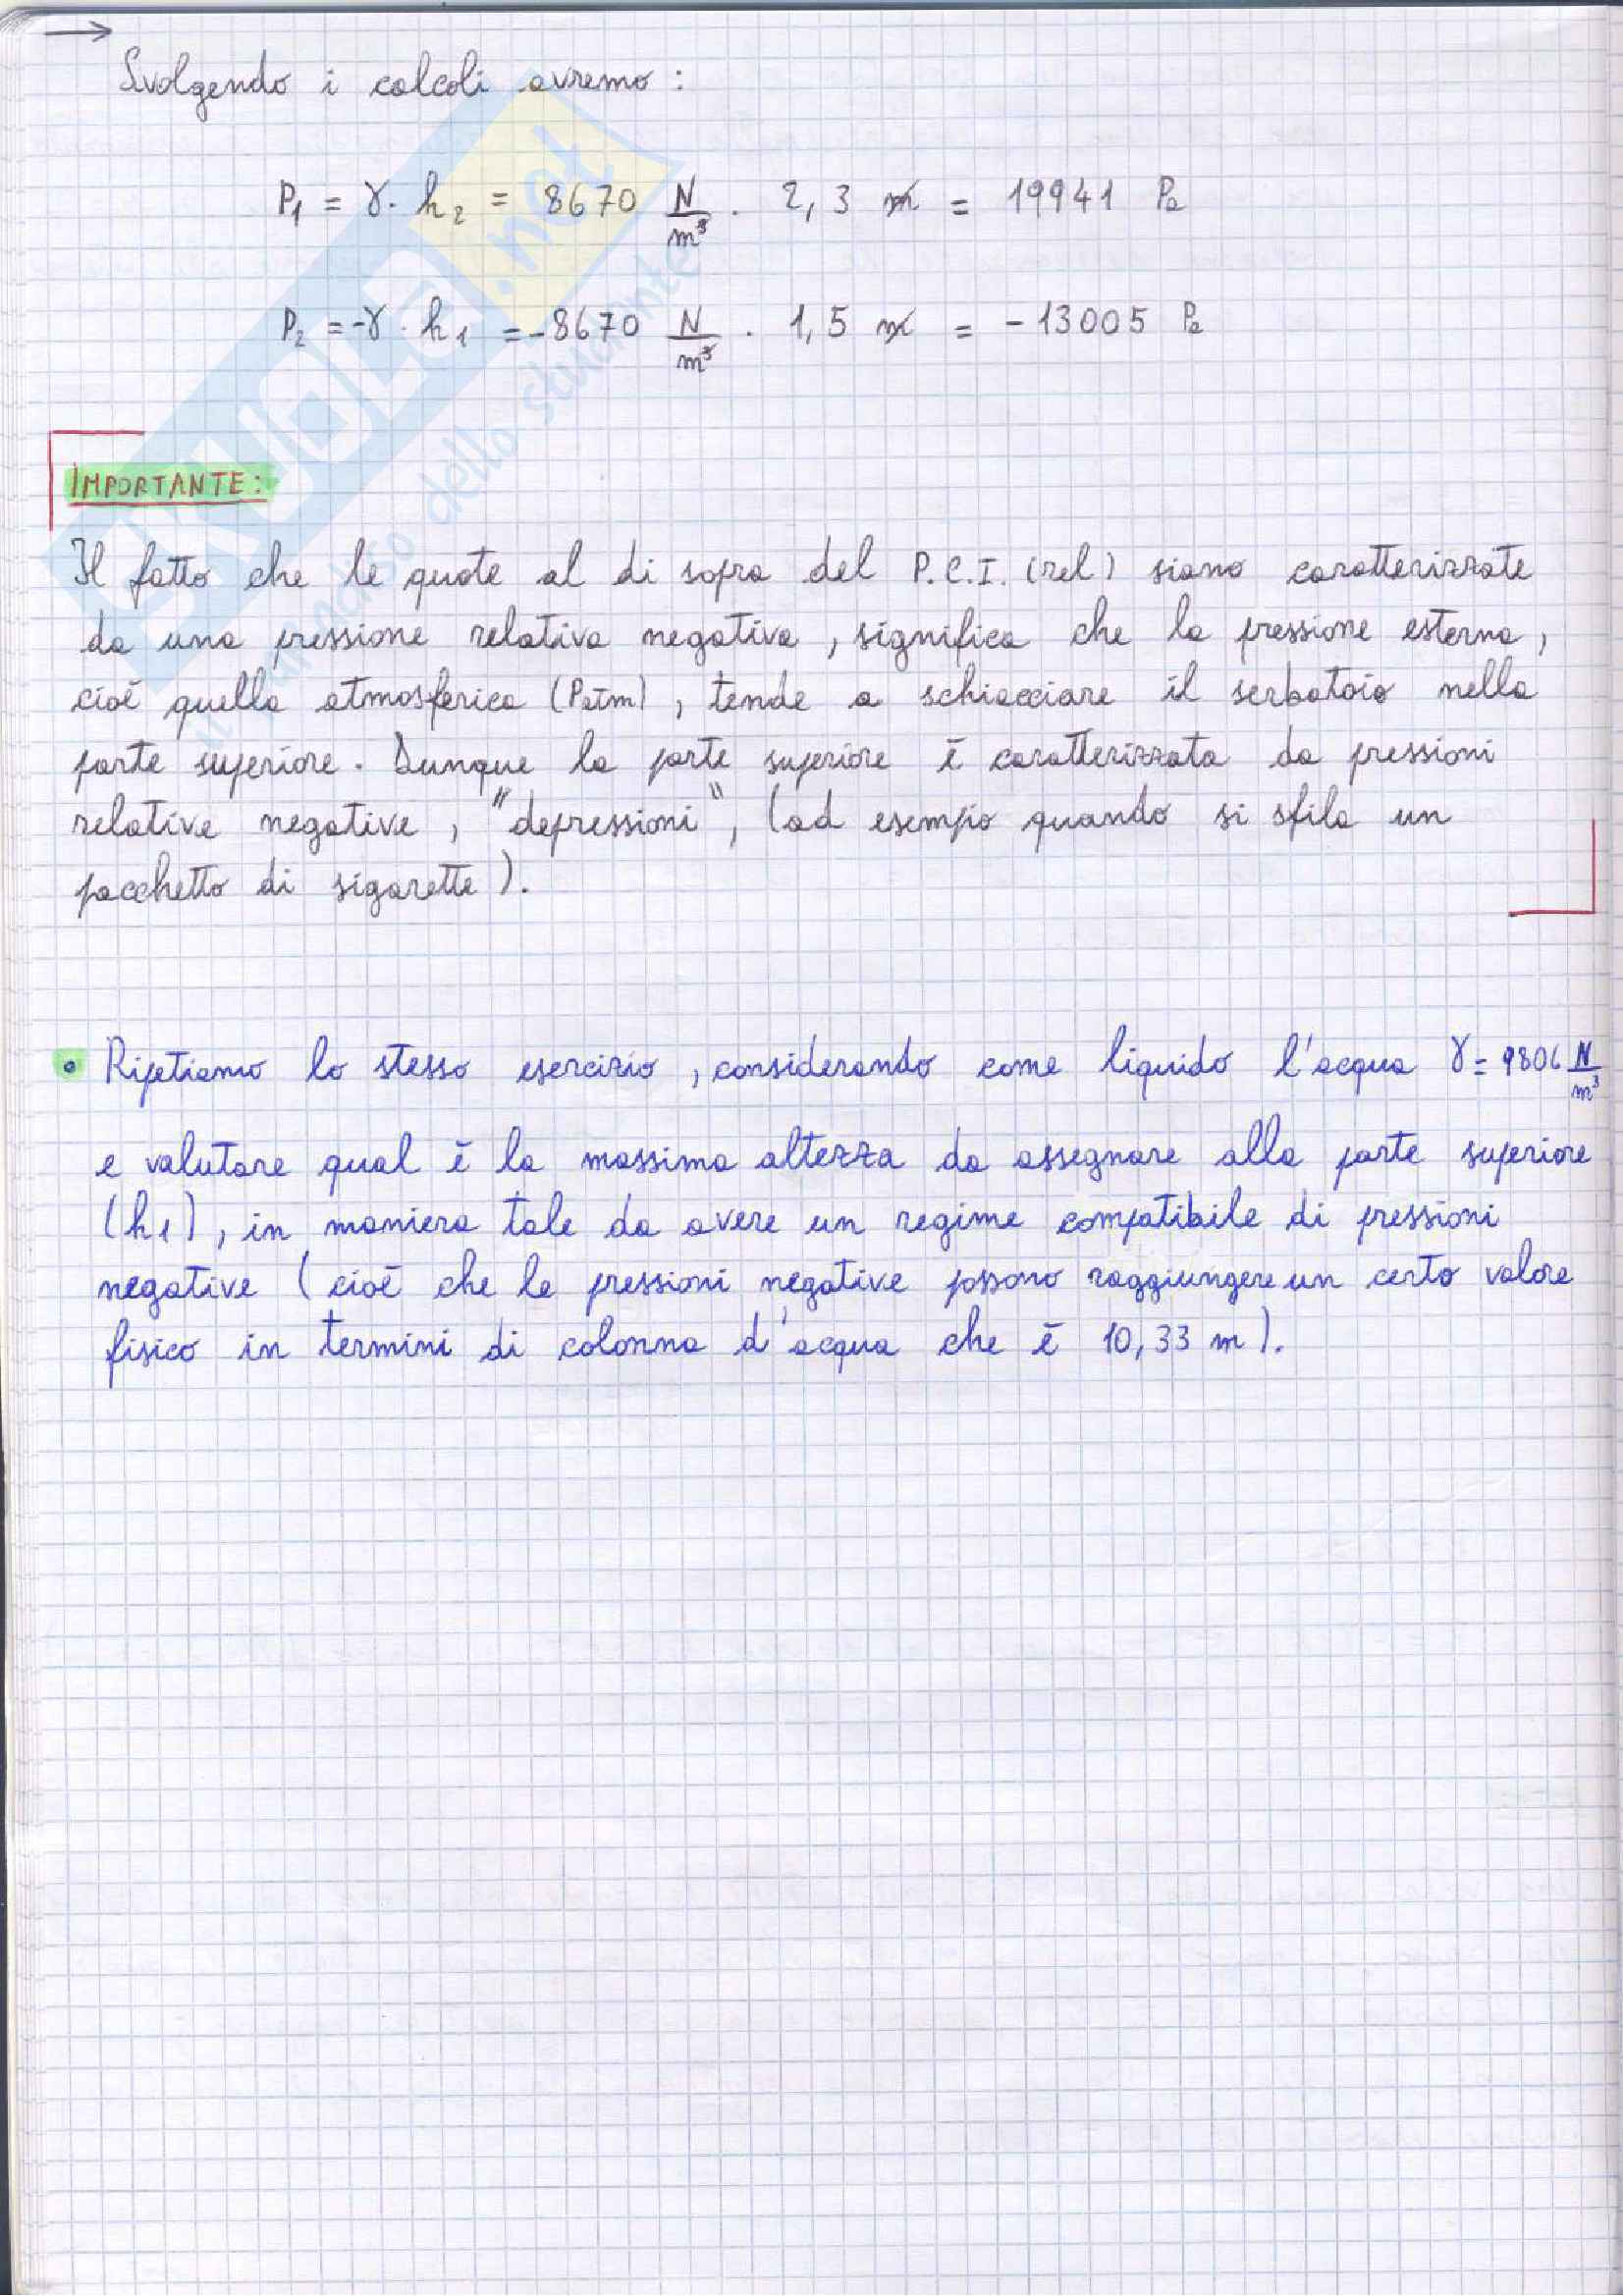 Svolgendo i calcoli avremo :
P₁ = γ · h₂ = 8670 N/m³ · 2,3 m = 19941 Pa
P₂ = -γ · h₁ = -8670 N/m³ · 1,5 m = -13005 Pa
IMPORTANTE:
Il fatto che le quote al di sopra del P.C.I. (rel) siano caratterizzate
da una pressione relativa negativa, significa che la pressione esterna,
cioè quella atmosferica (Patm), tende a schiacciare il serbatoio nella
parte superiore. Dunque la parte superiore è caratterizzata da pressioni
relative negative, "depressioni", (ad esempio quando si sfila un
pacchetto di sigarette).
• Ripetiamo lo stesso esercizio, considerando come liquido l'acqua γ = 9806 N/m³
e valutare qual è la massima altezza da assegnare alla parte superiore
(h₁), in maniera tale da avere un regime compatibile di pressioni
negative (cioè che le pressioni negative possono raggiungere un certo valore
fisico in termini di colonna d'acqua che è 10,33 m).
SKUOLA.net